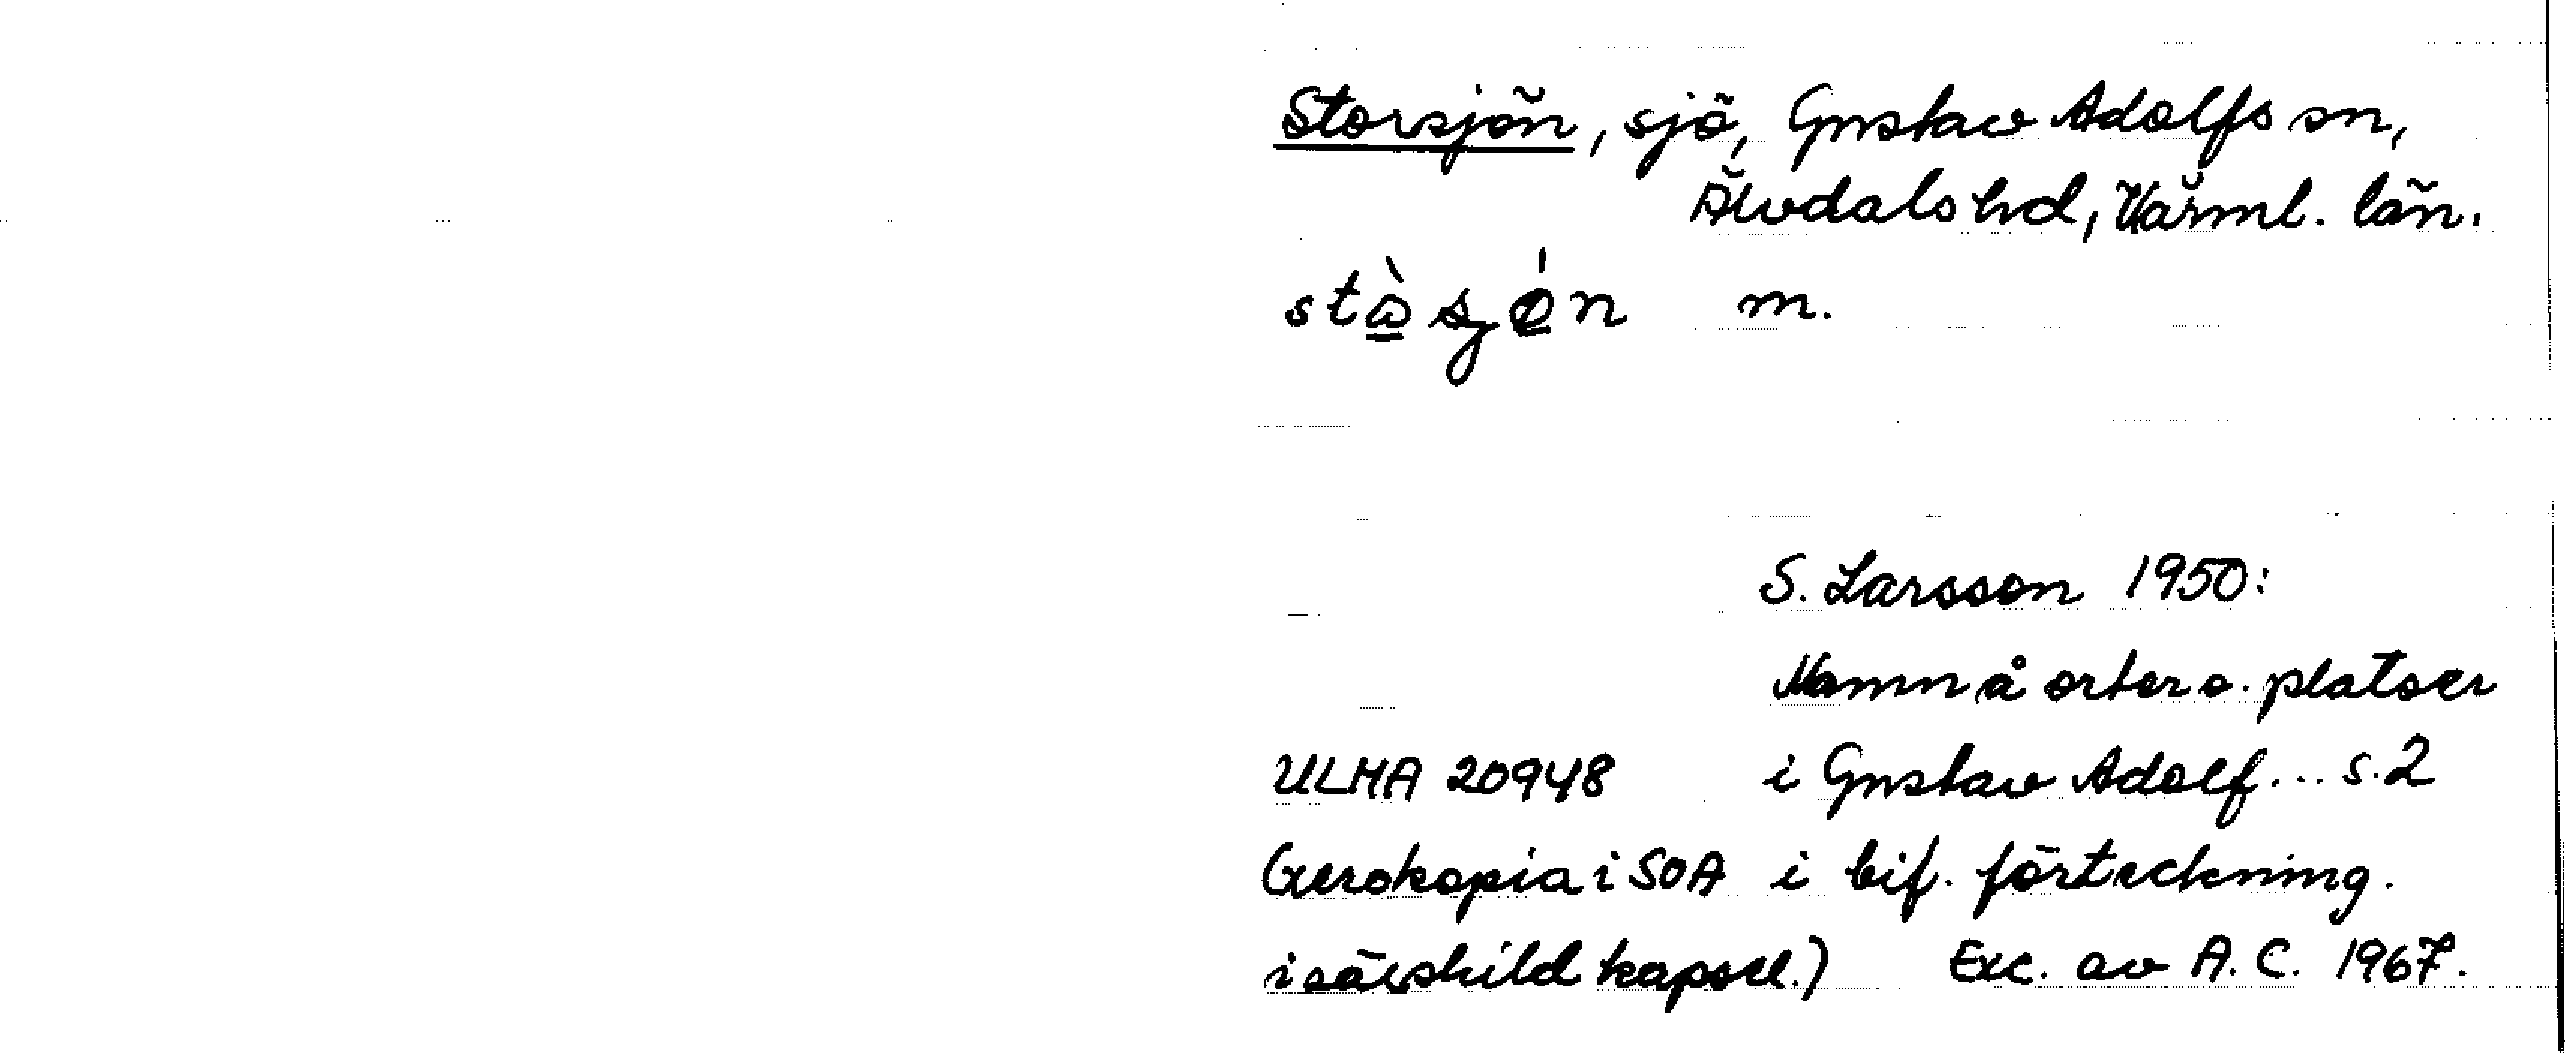 Storsjön, sjö, Gustav Adolfs sn,
Älvdals hd, Värml. län.
m.
S. Larsson 1950:
Namn å orter o. platser
ULMA 20948 i Gustav Adolf... s. 2
(Xerokopia i SOA i bif. förteckning.
i särskild kapsel.) Exc. av A. C. 1967.